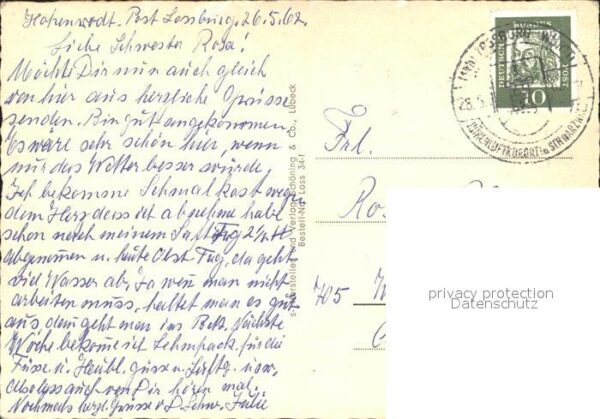 Hopenwodt. Post Lossburg, 26.5.62.
Liebe Schwester Rosa!
Möchte Dir nun auch gleich
von hier aus herzliche Grüsse
senden. Bin gut angekommen
Es wäre sehr schön hier, wenn
nur das Wetter besser würde.
Ich bekomme Schmalkost wegen
dem Herz dass ich abnehme habe
schon nach meinem Saft Tag 2½ ℔
abgenomen u. heute Obst-Tag, da geht
viel Wasser ab. Ja wen man nicht
arbeiten muss, haltet man es gut
aus, dem geht man ins Bett. Nächste
Woche bekome ich Lehmpack. für die
Füsse u. Heubl. güsse u. Luftg. usw.
auch von Dir hören mal.
Nochmals herzl. Grüsse v. D. Schw. Julie
Verlag Schöning & Co., Lübeck
Bestell-Nr. Loss 34-1
DEUTSCHE BUNDESPOST
10
LOSSBURG
28.5.
HÖHENLUFTKURORT i. SCHWARZWALD
Frl.
705
privacy protection
Datenschutz